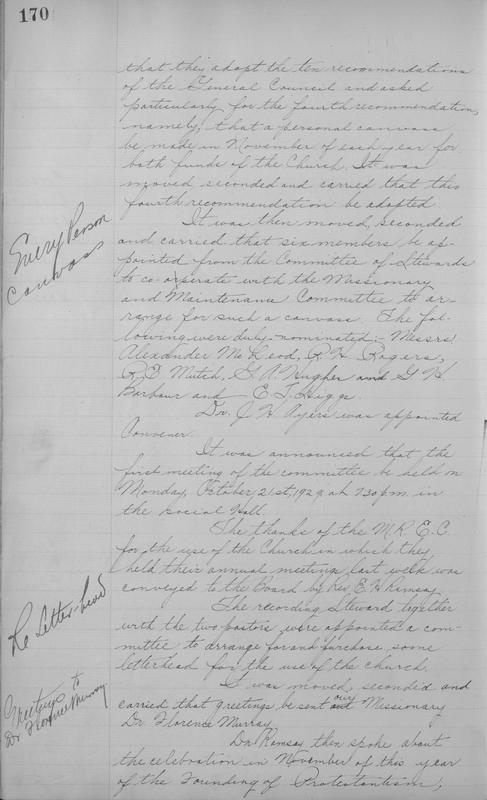 170
that they adopt the ten recommendations
of the General Council and asked
particularly for the fourth recommendation,
namely, that a personal canvass
be made in November of each year for
both funds of the Church. It was
moved, seconded and carried that this
fourth recommendation be adopted.
It was then moved, seconded
and carried that six members be ap-
pointed from the Committee of Stewards
to co-operate with the Missionary
and Maintenance Committee to ar-
range for such a canvass. The fol-
lowing were duly nominated:- Messrs
Alexander McLeod, R. H. Rogers,
R. E. Mutch, G. A. Hughes and G. H.
Barbour and E. T. Higgs.
Dr. J. H. Ayers was appointed
Convener.
It was announced that the
first meeting of the committee be held on
Monday, October 21st, 1929 at 7.30 p.m. in
the Social Hall.
The thanks of the M. R. E. C.
for the use of the Church in which they
held their annual meeting last week was
conveyed to the Board by Rev. E. H. Ramsay
The recording Steward together
with the two pastors were appointed a com-
mittee to arrange for and purchase some
letterhead for the use of the church.
It was moved, seconded and
carried that greetings be sent our Missionary
Dr. Florence Murray.
Dr. Ramsay then spoke about
the celebration in November of this year
of the Founding of Protestantism;
Every Person
Canvass
Re Letter-head
Greetings to
Dr. Florence Murray